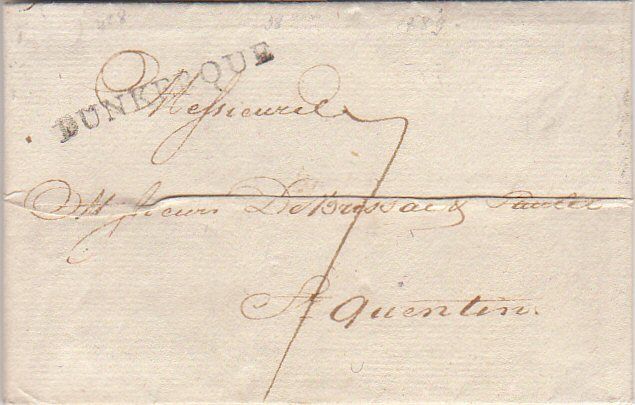 DUNKERQUE
Messieurs
Messieurs De Brissac &
St Quentin.
7